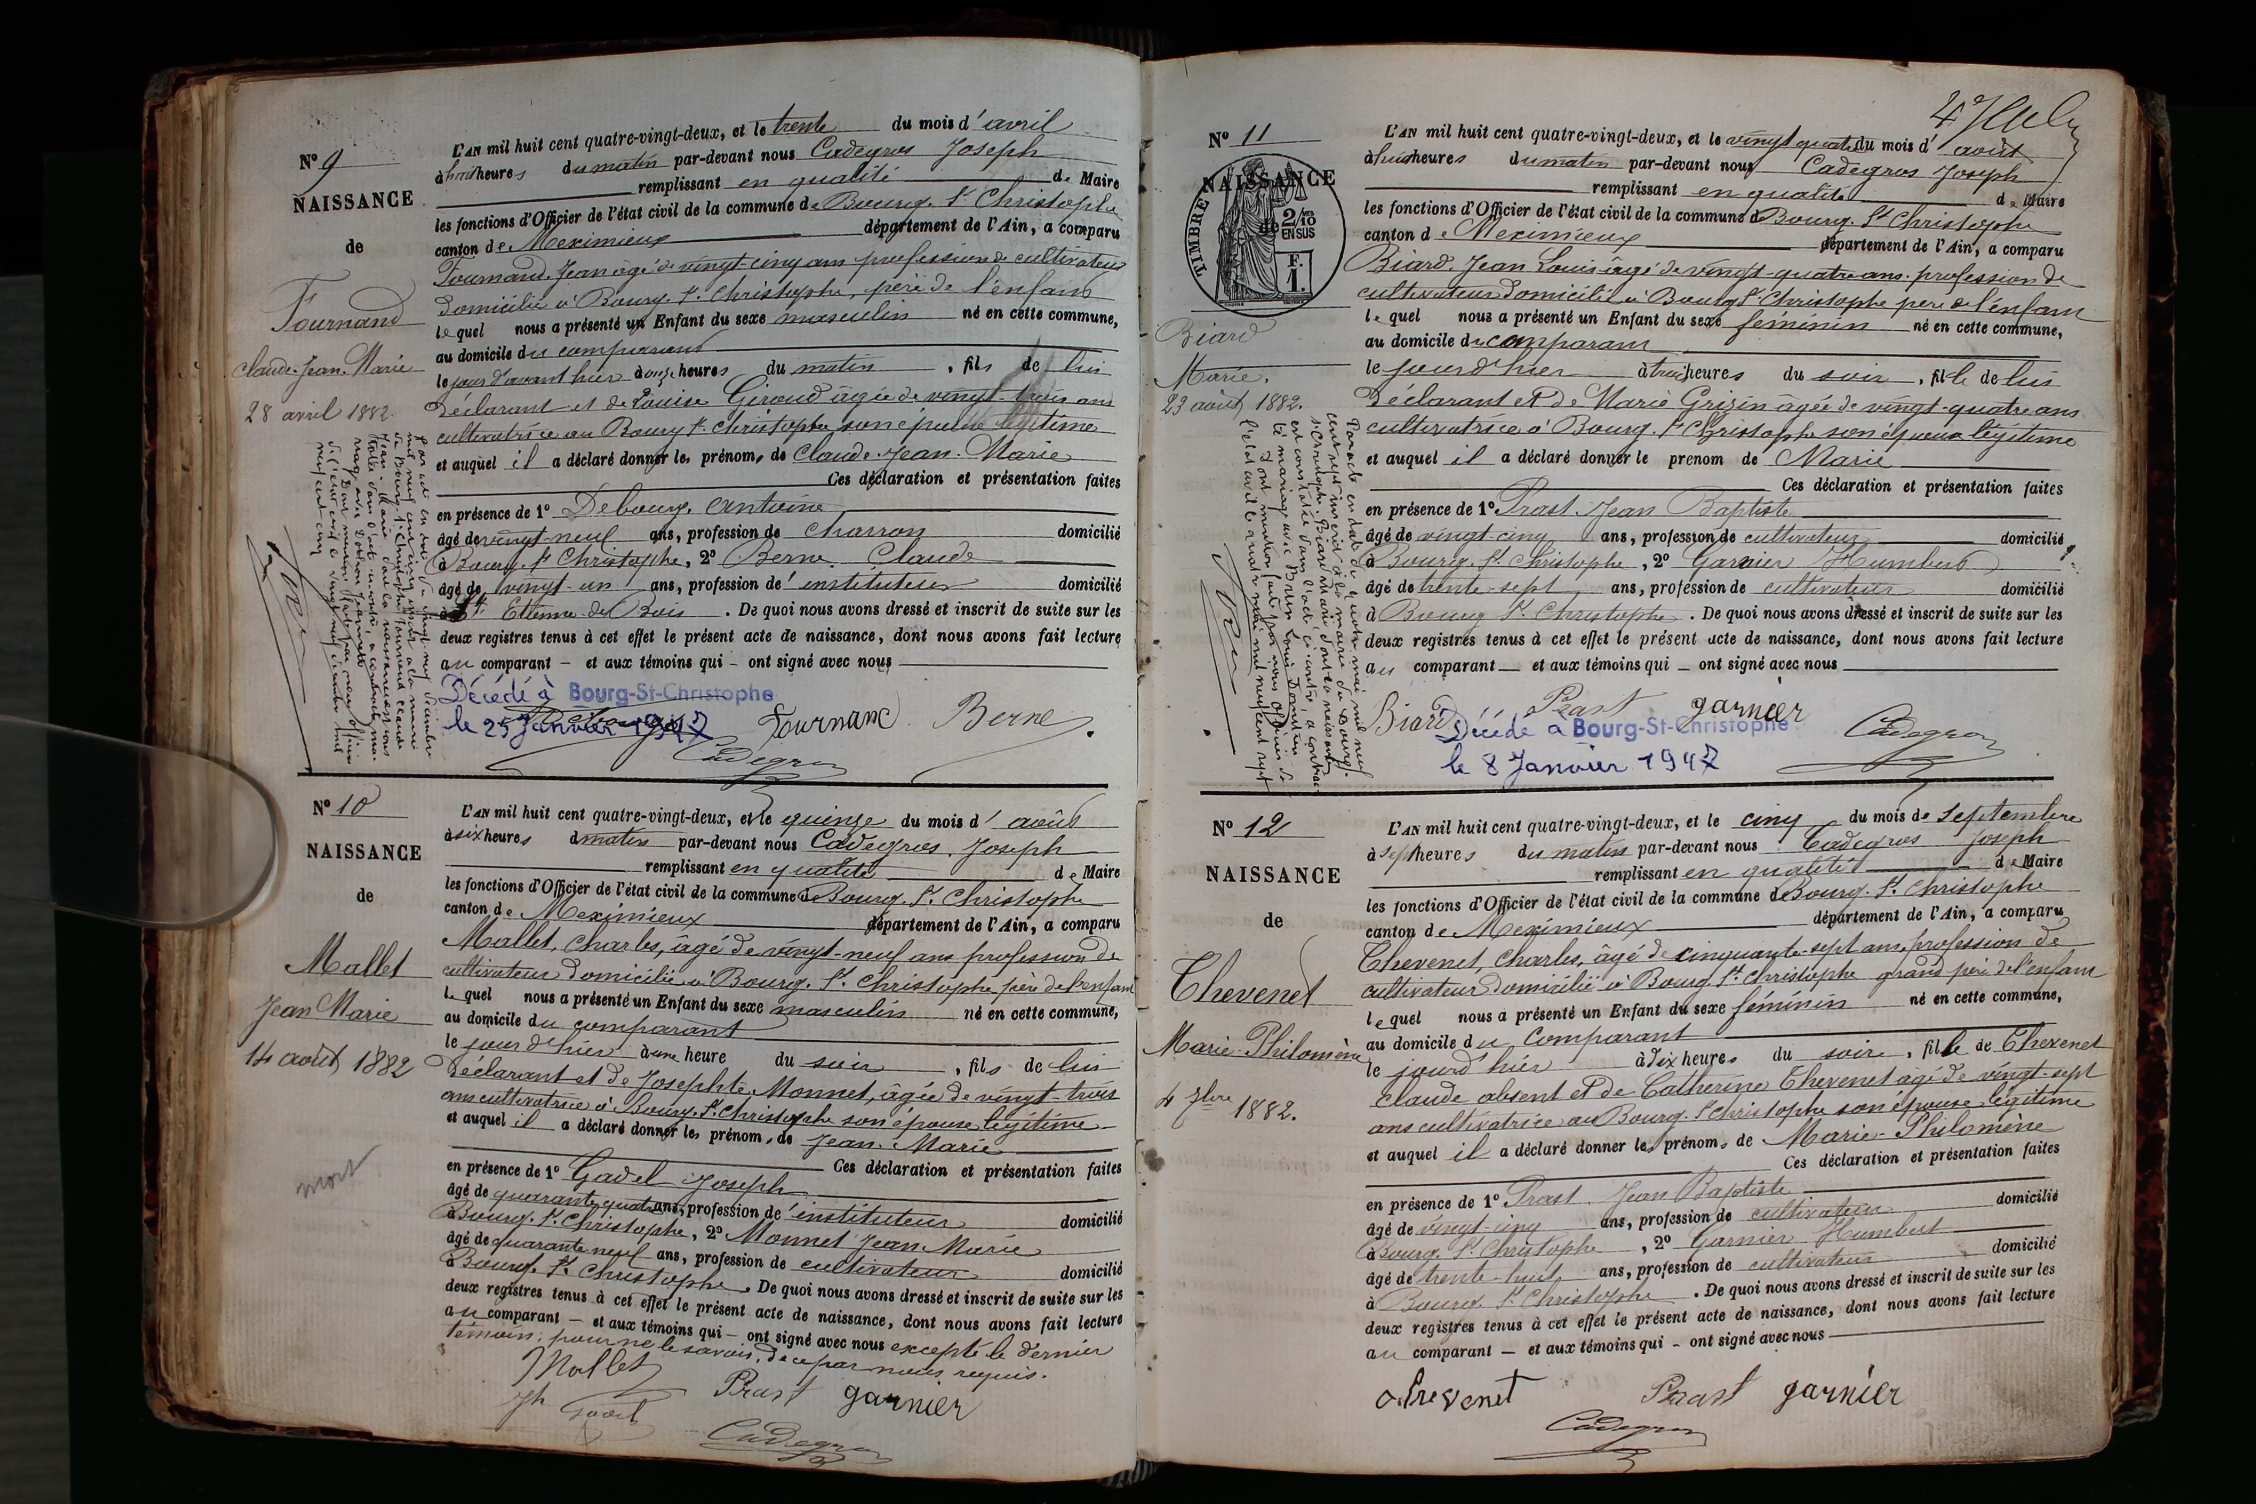 N° 9
NAISSANCE
de
Fournand
Claude Jean Marie
28 avril 1882.
L'AN mil huit cent quatre-vingt-deux, et le trente du mois d'avril
à huit heures du matin par-devant nous Cadegros Joseph
remplissant en qualité de Maire
les fonctions d'Officier de l'état civil de la commune de Bourg-St Christophe
canton de Meximieux département de l'Ain, a comparu
Fournand, Jean âgé de vingt cinq ans profession de cultivateur
domicilié à Bourg-St Christophe, père de l'enfant
lequel nous a présenté un Enfant du sexe masculin né en cette commune,
au domicile du comparant
le jour d'avant hier à onze heures du matin, fils de lui
Déclarant et de Louise Giroud âgée de vingt-trois ans
cultivatrice au Bourg St Christophe son épouse légitime
et auquel il a déclaré donner les prénoms de Claude-Jean-Marie
Ces déclaration et présentation faites
en présence de 1° Debourg, Antoine
âgé de vingt-neuf ans, profession de charron domicilié
à Bourg-St Christophe, 2° Berne, Claude
âgé de vingt-un ans, profession d'instituteur domicilié
à St Etienne du Bois. De quoi nous avons dressé et inscrit de suite sur les
deux registres tenus à cet effet le présent acte de naissance, dont nous avons fait lecture
au comparant — et aux témoins qui — ont signé avec nous
Décédé à Bourg-St-Christophe
le 25 Janvier 1947
Fournand Berne
Cadegros
N° 10
NAISSANCE
de
Mallet
Jean Marie
14 août 1882
mort
L'AN mil huit cent quatre-vingt-deux, et le quinze du mois d'août
à six heures du matin par-devant nous Cadegros, Joseph
remplissant en qualité de Maire
les fonctions d'Officier de l'état civil de la commune de Bourg-St Christophe
canton de Meximieux département de l'Ain, a comparu
Mallet, Charles, âgé de vingt-neuf ans profession de
cultivateur domicilié à Bourg-St Christophe père de l'enfant
lequel nous a présenté un Enfant du sexe masculin né en cette commune,
au domicile du comparant
le jour d'hier à une heure du soir, fils de lui
Déclarant et de Josephte Monnet, âgée de vingt-trois
ans cultivatrice à Bourg-St Christophe son épouse légitime
et auquel il a déclaré donner les prénoms de Jean-Marie
Ces déclaration et présentation faites
en présence de 1° Gadel Joseph
âgé de quarante quatre ans, profession d'instituteur domicilié
à Bourg-St Christophe, 2° Monnet Jean Marie
âgé de quarante-neuf ans, profession de cultivateur domicilié
à Bourg-St Christophe. De quoi nous avons dressé et inscrit de suite sur les
deux registres tenus à cet effet le présent acte de naissance, dont nous avons fait lecture
au comparant — et aux témoins qui — ont signé avec nous excepté le dernier
témoin, pour ne le savoir, de ce par nous requis.
Mallet
Prast garnier
Cadegros
N° 11
NAISSANCE
de
TIMBRE
2/10 EN SUS
F. 1.
Biard
Marie.
23 août 1882.
L'AN mil huit cent quatre-vingt-deux, et le vingt quatre du mois d'août
à huit heures du matin par-devant nous Cadegros Joseph
remplissant en qualité de Maire
les fonctions d'Officier de l'état civil de la commune de Bourg-St Christophe
canton de Meximieux département de l'Ain, a comparu
Biard, Jean Louis âgé de vingt-quatre ans profession de
cultivateur domicilié à Bourg St Christophe père de l'enfant
lequel nous a présenté un Enfant du sexe féminin né en cette commune,
au domicile du comparant
le jour d'hier à trois heures du soir, fille de lui
Déclarant et de Marie Grizin âgée de vingt-quatre ans
cultivatrice à Bourg-St Christophe son épouse légitime
et auquel il a déclaré donner le prenom de Marie
Ces déclaration et présentation faites
en présence de 1° Prast Jean Baptiste
âgé de vingt-cinq ans, profession de cultivateur domicilié
à Bourg-St Christophe, 2° Garnier Humbert
âgé de trente-sept ans, profession de cultivateur domicilié
à Bourg St Christophe. De quoi nous avons dressé et inscrit de suite sur les
deux registres tenus à cet effet le présent acte de naissance, dont nous avons fait lecture
au comparant — et aux témoins qui — ont signé avec nous
Biard Prast garnier
Décédé à Bourg-St-Christophe
le 8 Janvier 1947
Cadegros
N° 12
NAISSANCE
de
Thevenet
Marie-Philomène
4 7bre 1882.
L'AN mil huit cent quatre-vingt-deux, et le cinq du mois de Septembre
à sept heures du matin par-devant nous Cadegros Joseph
remplissant en qualité de Maire
les fonctions d'Officier de l'état civil de la commune de Bourg-St Christophe
canton de Meximieux département de l'Ain, a comparu
Thevenet, Charles, âgé de cinquante-sept ans profession de
cultivateur domicilié à Bourg St Christophe grand père de l'enfant
lequel nous a présenté un Enfant du sexe féminin né en cette commune,
au domicile du Comparant
le jour d'hier à dix heures du soir, fille de Thevenet
Claude absent et de Catherine Thevenet âgé de vingt-sept
ans cultivatrice au Bourg-St Christophe son épouse légitime
et auquel il a déclaré donner les prénoms de Marie-Philomène
Ces déclaration et présentation faites
en présence de 1° Prast Jean Baptiste
âgé de vingt-cinq ans, profession de cultivateur domicilié
à Bourg St Christophe, 2° Garnier Humbert
âgé de trente-huit ans, profession de cultivateur domicilié
à Bourg-St Christophe. De quoi nous avons dressé et inscrit de suite sur les
deux registres tenus à cet effet le présent acte de naissance, dont nous avons fait lecture
au comparant — et aux témoins qui — ont signé avec nous
Thevenet Prast garnier
Cadegros